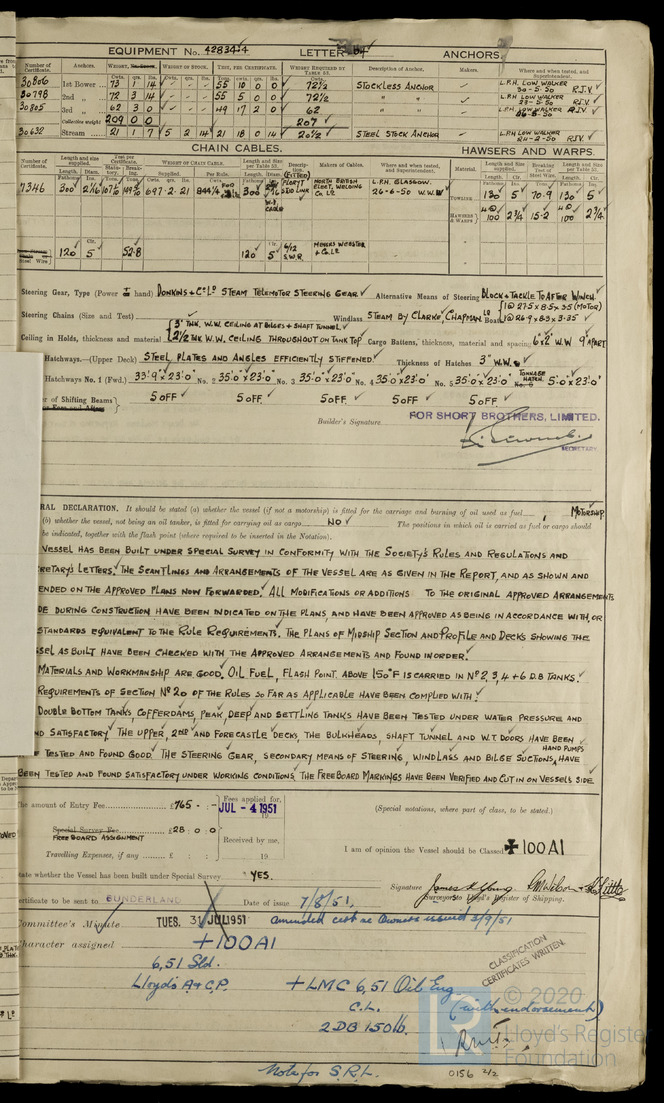 EQUIPMENT No. 42834·4 LETTER ANCHORS.
Number of Certificate. Anchors. WEIGHT, WEIGHT OF STOCK. TEST, PER CERTIFICATE. WEIGHT REQUIRED BY TABLE 53. Description of Anchor. Makers. Where and when tested, and Superintendent.
Cwts. qrs. lbs. Cwts. qrs. lbs. Tons. cwts. qrs. lbs. Cwts.
30806 1st Bower 73 1 14 - - - 55 10 0 0 72½ STOCKLESS ANCHOR L.P.H LOW WALKER 30-5-50 R.J.V
30798 2nd „ 72 3 14 - - - 55 5 0 0 72½ „ „ L.P.H LOW WALKER 23-5-50 R.J.V
30805 3rd „ 62 3 0 - - - 49 17 2 0 62 „ „ L.P.H LOW WALKER R.J.V
Collective weight 209 0 0 207
30632 Stream 21 1 7 5 2 14 21 18 0 14 20½ STEEL STOCK ANCHOR L.P.H LOW WALKER 24-2-50 R.J.V.
CHAIN CABLES. HAWSERS AND WARPS.
Number of Certificate. Length and size supplied. Test per Certificate. WEIGHT OF CHAIN CABLE. Length and Size per Table 53. Description. Makers of Cables. Where and when tested, and Superintendent. Material. Length and size supplied. Breaking Test of Steel Wire. Length and size per Table 53.
7346 300 2 1/16 697·2·21 300 NORTH BRITISH ELECT. WELDING Co Ld L.P.H. GLASGOW. 26-6-50 W.W.W TOWLINE 130 5 70·9 130 5
HAWSERS & WARPS 4@ 100 2¾ 15·2 4@ 100 2¾
Steel Wire 120 5 52·8 120 5 6/12 S.W.R. WEBSTER + Co. Ld
Steering Gear, Type (Power & hand) DONKINS + Co Ld STEAM TELEMOTOR STEERING GEAR Alternative Means of Steering BLOCK + TACKLE TO AFTER WINCH
Steering Chains (Size and Test) Windlass STEAM BY CLARKE, CHAPMAN Ld Boats 1@ 27.5 x 8.5 x 3.5 (MOTOR) 1@ 26.9 x 8.3 x 3.35
Ceiling in Holds, thickness and material 3" THK. W.W. CEILING AT BILGES + SHAFT TUNNEL 2½ THK W.W. CEILING THROUGHOUT ON TANK TOP Cargo Battens, thickness, material and spacing 6" x 2" W.W 9" APART
Hatchways.—(Upper Deck) STEEL PLATES AND ANGLES EFFICIENTLY STIFFENED. Thickness of Hatches 3" W.W.
Hatchways No. 1 (Fwd.) 33'·9" x 23'·0" No. 2 35'·0" x 23'·0" No. 3 35'·0" x 23'·0" No. 4 35'·0" x 23'·0" No. 5 35'·0" x 23'·0" TONNAGE HATCH. 5'·0" x 23'·0"
er of Shifting Beams 5 OFF 5 OFF. 5 OFF. 5 OFF 5 OFF.
Builder's Signature. FOR SHORT BROTHERS, LIMITED.
SECRETARY.
RAL DECLARATION. It should be stated (a) whether the vessel (if not a motorship) is fitted for the carriage and burning of oil used as fuel MOTORSHIP
(b) whether the vessel, not being an oil tanker, is fitted for carrying oil as cargo NO The positions in which oil is carried as fuel or cargo should
be indicated, together with the flash point (where required to be inserted in the Notation).
VESSEL HAS BEEN BUILT UNDER SPECIAL SURVEY IN CONFORMITY WITH THE SOCIETY'S RULES AND REGULATIONS AND
CRETARY'S LETTERS. THE SCANTLINGS AND ARRANGEMENTS OF THE VESSEL ARE AS GIVEN IN THE REPORT, AND AS SHOWN AND
ENDED ON THE APPROVED PLANS NOW FORWARDED. ALL MODIFICATIONS OR ADDITIONS TO THE ORIGINAL APPROVED ARRANGEMENTS
DE DURING CONSTRUCTION HAVE BEEN INDICATED ON THE PLANS, AND HAVE BEEN APPROVED AS BEING IN ACCORDANCE WITH, OR
STANDARDS EQUIVALENT TO THE RULE REQUIREMENTS. THE PLANS OF MIDSHIP SECTION AND PROFILE AND DECKS SHOWING THE
SSEL AS BUILT HAVE BEEN CHECKED WITH THE APPROVED ARRANGEMENTS AND FOUND IN ORDER.
MATERIALS AND WORKMANSHIP ARE GOOD. OIL FUEL, FLASH POINT. ABOVE 150°F IS CARRIED IN No 2, 3, 4 + 6 D.B TANKS.
REQUIREMENTS OF SECTION No 20 OF THE RULES SO FAR AS APPLICABLE HAVE BEEN COMPLIED WITH.
DOUBLE BOTTOM TANKS, COFFERDAMS, PEAK, DEEP AND SETTLING TANKS HAVE BEEN TESTED UNDER WATER PRESSURE AND
ND SATISFACTORY. THE UPPER, 2ND AND FORECASTLE DECKS, THE BULKHEADS, SHAFT TUNNEL AND W.T. DOORS HAVE BEEN
E TESTED AND FOUND GOOD. THE STEERING GEAR, SECONDARY MEANS OF STEERING, WINDLASS AND BILGE SUCTIONS, HAND PUMPS HAVE
BEEN TESTED AND FOUND SATISFACTORY UNDER WORKING CONDITIONS. THE FREEBOARD MARKINGS HAVE BEEN VERIFIED AND CUT IN ON VESSELS SIDE.
The amount of Entry Fee £765 · - · - Fees applied for, JUL - 4 1951 (Special notations, where part of class, to be stated.)
Special Survey Fee £28 : 0 : 0
FREEBOARD ASSIGNMENT Received by me,
Travelling Expenses, if any £ : : 19 . I am of opinion the Vessel should be Classed ✠100A1
state whether the Vessel has been built under Special Survey YES.
Signature James K Young
Surveyor to Lloyd's Register of Shipping.
Certificate to be sent to SUNDERLAND Date of issue 7/8/51,
amended cert as Owners issued 3/9/51
Committee's Minute TUES. 31 JUL 1951
Character assigned +100A1
CLASSIFICATION CERTIFICATES WRITTEN.
6,51 Sld.
Lloyd's A & C.P. +LMC 6,51 Oil Eng
C.L. (with endorsement)
2DB 150 lb.
© 2020
Lloyd's Register Foundation
Note for S.R.L.
0156 2/2